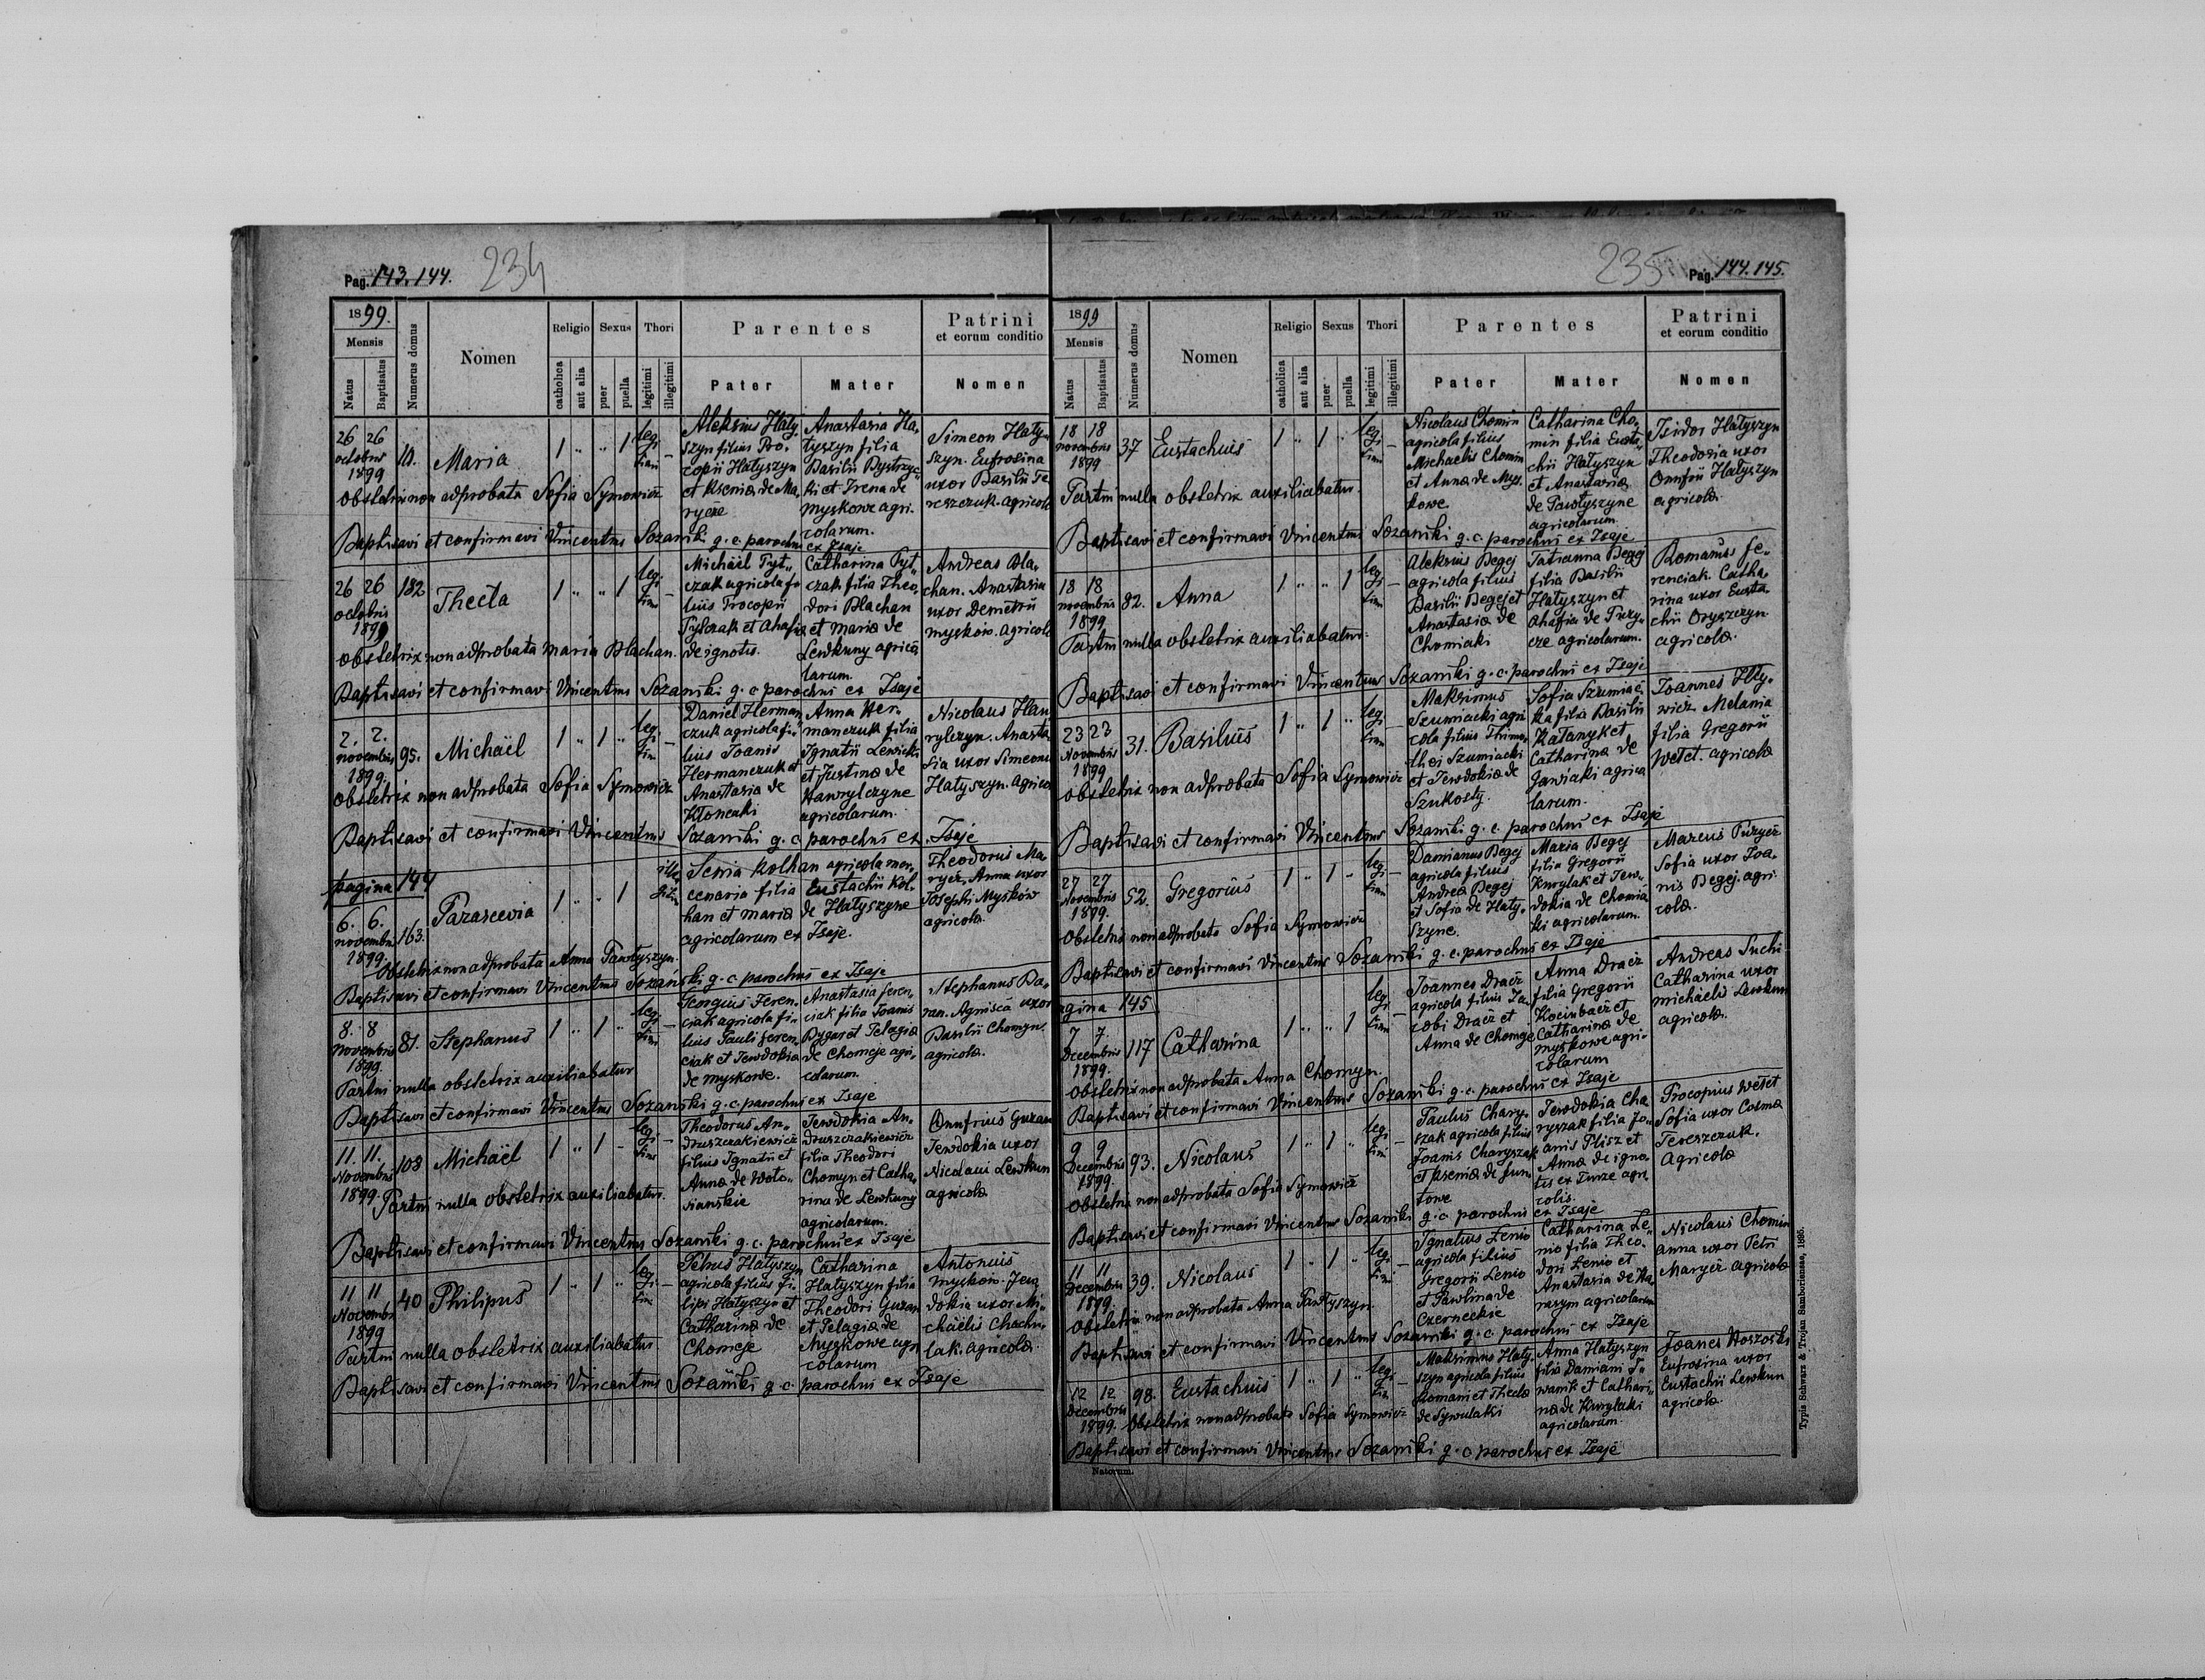 Pag. 143. 144. 234
1899.
Mensis
Natus
Baptisatus
Numerus domus
Nomen
Religio
catholica
aut alia
Sexus
puer
puella
Thori
legitimi
illegitimi
Parentes
Pater
Mater
Patrini
et eorum conditio
Nomen
26 26
octobris
1899
10.
Maria
1 " " 1
legi
timi
Aleksius Haty
szyn filius Pro-
copii Hatyszyn
et Ksenia de Ma
rycze
Anastasia Ha-
tyszyn filia
Basilii Bystrzyc
ki et Irena de
Myskowe agri-
colarum.
Simeon Haty-
szyn. Eufrosina
uxor Basilii Te
reszczuk. agricola
Obstetrix non adprobata Sofia Symowicz
Baptisavi et confirmavi Vincentius Sozański g. c. parochus
ex Isaje
26 26
octobris
1899
182
Thecla
1 " " 1
legi
timi
Michael Pyt-
czak agricola fi
lius Procopii
Pytczak et Ahafia
de ignotis.
Catharina Pyt-
czak filia Theo-
dori Blachan
et Maria de
Lewkuny agrico
larum.
Andreas Bla-
chan. Anastasia
uxor Demetrii
Myskow. agricola
Obstetrix non adprobata Maria Blachan.
Baptisavi et confirmavi Vincentius Sozański g. c. parochus ex Isaje
2. 2.
novembris
1899.
95.
Michaël
1 " 1 "
legi
tim
Daniel Herman
czuk agricola fi-
lius Joanis
Hermanczuk et
Anastasia de
Kłoncaki
Anna Her-
manczuk filia
Ignatii Lewicki
et Justina de
Hawrylczyne
agricolarum.
Nicolaus Haw
rylczyn. Anasta
sia uxor Simeonis
Hatyszyn. agricola
Obstetrix non adprobata Sofia Symowicz
Baptisavi et confirmavi Vincentius Sozański g. c. parochus ex Isaje
pagina 144
6. 6.
novembris
1899.
163.
Parascevia
1 " " 1
ille
gitim
Senia Kolhan agricola mer-
cenaria filia Eustachii Kol-
han et Maria de Hatyszyne
agricolarum ex Isaje.
Theodorus Ma-
rycz, Anna uxor
Josephi Myskow
agricola.
Obstetrix non adprobata Anna Pawtyszyn.
Baptisavi et confirmavi Vincentius Sozański g. c. parochus ex Isaje
8. 8
Novembris
1899.
81.
Stephanus
1 " 1 "
legi
timi
Sergius Feren-
ciak agricola fi-
lius Pauli Feren
ciak et Jewdokia
de Myskowe.
Anastasia Feren,
ciak filia Joanis
Rygar et Pelagia
de Chomeje agri-
colarum.
Stephanus Ba-
ran. Agnisca uxor
Basilii Chomyn.
agricola.
Partui nulla obstetrix auxiliabatur
Baptisavi et confirmavi Vincentius Sozański g. c. parochus ex Isaje
11. 11.
Novembris
1899.
108
Michaël
1 " 1 -
legi
timi
Theodorus An-
druszczakiewicz
filius Ignatii et
Anna de Woło-
sianskie
Jewdokia An-
druszczakiewicz
filia Theodori
Chomyn et Catha-
rina de Lewkuny
agricolarum.
Onufrius Guzan
Jewdokia uxor
Nicolaui Lewkun
agricola
Partui nulla obstetrix auxiliabatur.
Baptisavi et confirmavi Vincentius Sozański g. c. parochus ex Isaje
11 11
Novembr
1899
40
Philipus
1 " 1 "
legi
timi
Petrus Hatyszyn
agricola filius Fi-
lipi Hatyszyn et
Catharina de
Chomeje
Catharina
Hatyszyn filia
Theodori Guzan
et Pelagia de
Myskowe agri
colarum
Antonius
Myskow. Jew
dokia uxor Mi-
chaëlis Chachu-
lak. agricola.
Partui nulla obstetrix auxiliabatur
Baptisavi et confirmavi Vincentius Sozański g. c. parochus ex Isaje
235 Pag. 144. 145.
1899
Mensis
Natus
Baptisatus
Numerus domus
Nomen
Religio
catholica
aut alia
Sexus
puer
puella
Thori
legitimi
illegitimi
Parentes
Pater
Mater
Patrini
et eorum conditio
Nomen
18 18
novembris
1899
37
Eustachius
1 " 1 "
legi
timi
Nicolaus Chomin
agricola filius
Michaelis Chomin
et Anna de Mys.
kowe.
Catharina Cho-
min filia Eusta-
chii Hatyszyn
et Anastasia
de Pawtyszyne
agricolarum.
Isidor Hatyszyn
Theodosia uxor
Onufrii Hatyszyn
agricola.
Partui nulla obstetrix auxiliabatur.
Baptisavi et confirmavi Vincentius Sozański g. c. parochus ex Isaje
18 18
novembris
1899
82.
Anna
1 " " 1
legi
timi
Aleksius Begej
agricola filius
Basilii Begej et
Anastasia de
Chomiaki
Tatianna Begej
filia Basilii
Hatyszyn et
Ahafia de Puzy-
cze agricolarum.
Romanus Fe-
renciak. Catha-
rina uxor Eusta-
chii Oryszczyn.
agricola.
Partui nulla obstetrix auxiliabatur.
Baptisavi et confirmavi Vincentius Sozański g. c. parochus ex Isaje
23 23
Novembris
1899
31.
Basilius
1 " 1 "
legi
timi
Maksimus
Szumiacki agri
cola filius Thimo-
thei Szumiacki
et Jewdokia de
Szukosty.
Sofia Szumiac-
ka filia Basilii
Katanyk et
Catharina de
Jawiaki agrico
larum.
Joannes Illy-
wicz. Melania
filia Gregorii
Wetet. agricola
Obstetrix non adprobata Sofia Symowicz
Baptisavi et confirmavi Vincentius Sozański g. c. parochus ex Isaje
27 27
Novembris
1899.
52.
Gregorius
1 " 1 "
legi
timi
Damianus Begej
agricola filius
Andrea Begej
et Sofia de Haty-
szyne.
Maria Begej
filia Gregorii
Kurylak et Jew-
dokia de Chomia
ki agricolarum.
Marcus Puzycz
Sofia uxor Joa-
nis Begej. agri-
cola.
Obstetrix non adprobata Sofia Symowicz
Baptisavi et confirmavi Vincentius Sozański g. c. parochus ex Isaje
agina 145
7 7
Decembris
1899.
117
Catharina
1 " " 1
legi
timi
Joannes Dracz
agricola filius Ja-
cobi Dracz et
Anna de Chomeje
Anna Dracz
filia Gregorii
Kociubacz et
Catharina de
Myskowe agri-
colarum
Andreas Suchi
Catharina uxor
Michaelis Lewkun
agricola.
Obstetrix non adprobata Anna Chomyn.
Baptisavi et confirmavi Vincentius Sozański g. c. parochus ex Isaje
9 9
Decembris
1899.
93.
Nicolaus
1 " 1 "
legi
timi
Paulus Chary-
szak agricola filius
Joanis Charyszak
et Ksenia de Jun
towe
Jewdokia Cha
ryszak filia Jo-
anis Plisz et
Anna de igno-
tis ex Turze agri
colis.
Procopius Wetet
Sofia uxor Cosma
Tereszczuk.
Agricola
Obstetrix non adprobata Sofia Symowicz
Baptisavi et confirmavi Vincentius Sozański g. c. parochus ex Isaje
11 11
Decembris
1899.
39.
Nicolaus
1 " 1 "
legi
timi
Ignatius Lenio
agricola filius
Gregorii Lenio
et Pawlina de
Czerneckie
Catharina Le-
nio filia Theo-
dori Lenio et
Anastasia de Ha
rasym agricolarum
Nicolaus Chomin
Anna uxor Petri
Marycz agricola
Obstetrix non adprobata Anna Pawtyszyn.
Baptisavi et confirmavi Vincentius Sozański g. c. parochus ex Isaje
12 12
Decembris
1899.
98.
Eustachius
1 " 1 "
legi
tim
Maksimus Haty-
szyn agricola filius
Romani et Thecla
de Sywulaki
Anna Hatyszyn
filia Damiani I-
wanik et Cathari-
na de Kurylaki
agricolarum.
Joanes Koszocki
Eufrosina uxor
Eustachii Lewkun
agricola.
Obstetrix non adprobata Sofia Symowicz
Baptisavi et confirmavi Vincentius Sozański g. c. parochus ex Isaje
Natorum.
Typis Schwarz & Trojan Samboriensae, 1895.